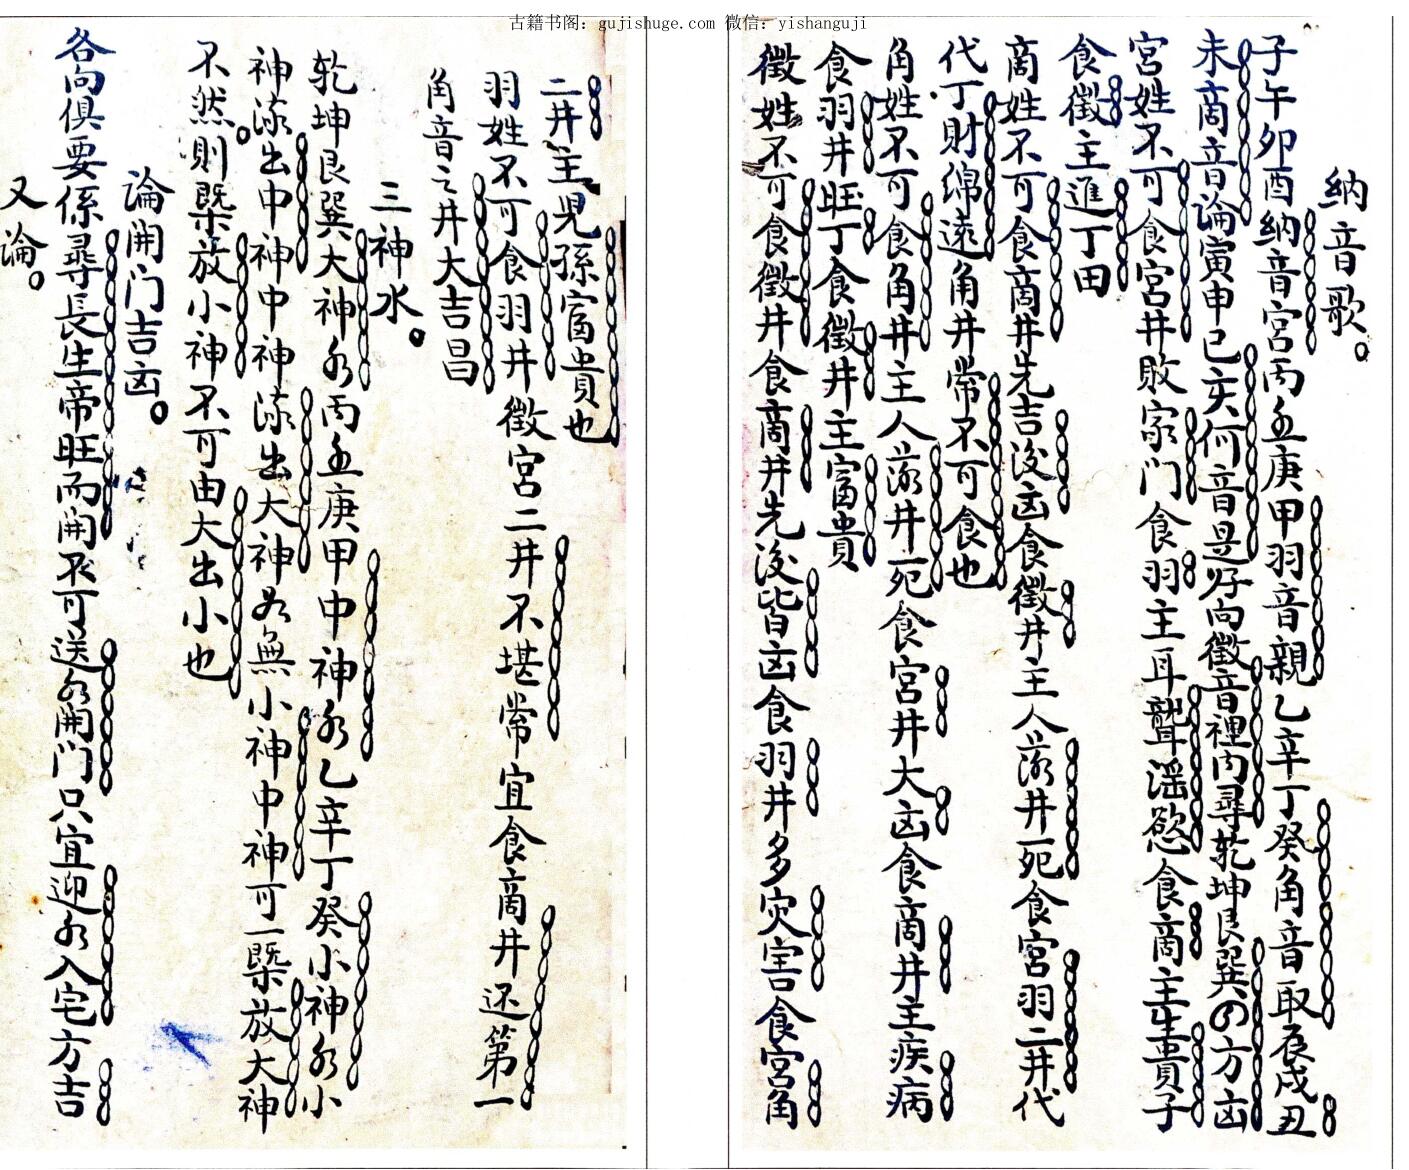 古籍书阁：gujishuge.com 微信：yishanguji
納音歌。
子午卯酉納音宮丙壬庚甲羽音親乙辛丁癸角音取辰戌丑
未商音論寅申巳亥何音是好向徵音裡內尋乾坤艮巽の方凶
宮姓不可食宮井敗家门食羽主耳聾滛慾食商主生貴子
食徵主進丁田
商姓不可食商井先吉後凶食徵井主人落井死食宮羽二井代
代丁財綿遠角井常不可食也
角姓不可食角井主人落井死食宮井大凶食商井主疾病
食羽井旺丁食徵井主富貴
徵姓不可食徵井食商井先後皆凶食羽井多灾害食宮角
二井主児孫富貴也
羽姓不可食羽井徵宮二井不堪常宜食商井还第一
角音之井大吉昌
三神水。
乾坤艮巽大神水丙壬庚甲中神水乙辛丁癸小神水小
神流出中神中神流出大神若無小神中神可一槩放大神
不然則槩放小神不可由大出小也
論開门吉凶。
各向俱要係尋長生帝旺而開不可送水開门只宜迎水入宅方吉
又論。